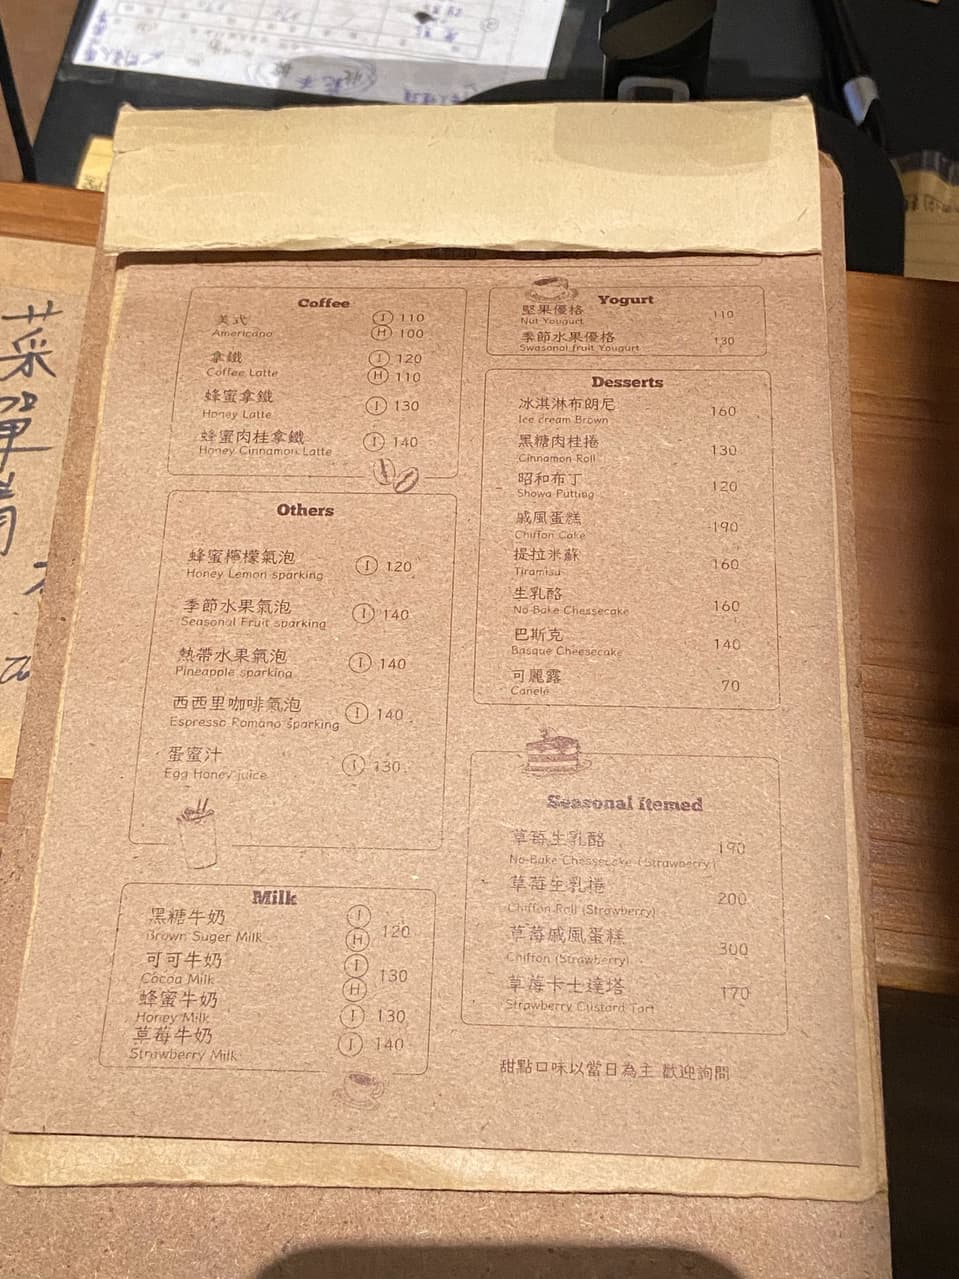 菜單請
Coffee
美式 Ⓘ 110
Americano Ⓗ 100
拿鐵 Ⓘ 120
Coffee Latte Ⓗ 110
蜂蜜拿鐵 Ⓘ 130
Honey Latte
蜂蜜肉桂拿鐵 Ⓘ 140
Honey Cinnamon Latte
Others
蜂蜜檸檬氣泡 Ⓘ 120
Honey Lemon sparking
季節水果氣泡 Ⓘ 140
Seasonal Fruit sparking
熱帶水果氣泡 Ⓘ 140
Pineapple sparking
西西里咖啡氣泡 Ⓘ 140
Espresso Romano sparking
蛋蜜汁 Ⓘ 130
Egg Honey juice
Milk
黑糖牛奶 Ⓘ
Brown Suger Milk Ⓗ 120
可可牛奶 Ⓘ
Cocoa Milk Ⓗ 130
蜂蜜牛奶 Ⓘ 130
Honey Milk
草莓牛奶 Ⓘ 140
Strawberry Milk
Yogurt
堅果優格 110
Nut Yougurt
季節水果優格 130
Swasonal fruit Yougurt
Desserts
冰淇淋布朗尼 160
Ice cream Brown
黑糖肉桂捲 130
Cinnamon Roll
昭和布丁 120
Showa Putting
戚風蛋糕 190
Chiffon Cake
提拉米蘇 160
Tiramisu
生乳酪 160
No-Bake Chessecake
巴斯克 140
Basque Cheesecake
可麗露 70
Canelé
Seasonal itemed
草莓生乳酪 190
No-Bake Chessecake (Strawberry)
草莓生乳捲 200
Chiffon Roll (Strawberry)
草莓戚風蛋糕 300
Chiffon (Strawberry)
草莓卡士達塔 170
Strawberry Custard Tart
甜點口味以當日為主 歡迎詢問